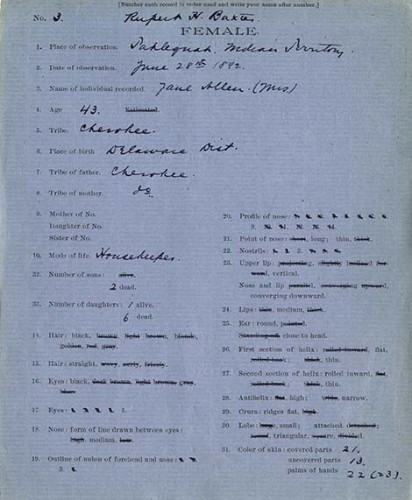 [Number each record in order used and write your name after number.]
No 3. Rupert H. Baxter.
FEMALE.
1. Place of observation. Tahlequah, Indian Territory.
2. Date of observation. June 28th 1892.
3. Name of individual recorded. Jane Allen (Mrs)
4. Age 43. Estimated.
5. Tribe. Cherokee.
6. Place of birth Delaware Dist.
7. Tribe of father. Cherokee.
8. Tribe of mother. do
9. Mother of No.
Daughter of No.
Sister of No.
10. Mode of life. Housekeeper.
32. Number of sons: alive.
2 dead.
33. Number of daughters: 1 alive.
6 dead.
14. Hair: black, brown, light brown, blonde,
golden, red, gray.
15. Hair: straight, wavy, curly, frizzly.
16. Eyes: black, dark brown, light brown, gray,
blue
17. Eyes: 5.
18. Nose: form of line drawn between eyes:
high, medium, low.
19. Outline of molen of forehead and nose:
20. Profile of nose:
21. Point of nose: short, long; thin, thick.
22. Nostrils:
23. Upper lip: projecting, slightly inclined for-
ward, vertical.
Nose and lip parallel, converging upward,
converging downward.
24. Lips: thin, medium, thick.
25. Ear: round, pointed.
Standing off close to head.
26. First section of helix: rolled inward, flat,
rolled back; thick, thin.
27. Second section of helix: rolled inward, flat,
rolled back; thick, thin.
28. Antihelix: flat, high; wide, narrow.
29. Crura: ridges flat, high.
30. Lobe: large, small; attached, detached;
round, triangular, square, divided.
31. Color of skin: covered parts 21.
uncovered parts 13.
palms of hands 22 (23).